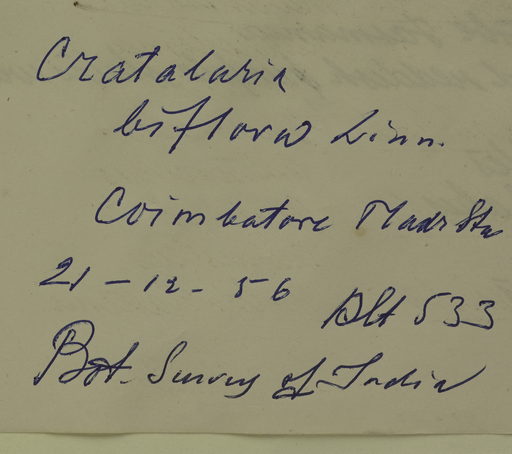 Cratalaria
biflora Linn.
Coimbatore Madr Sta
21 - 12 - 56
Alt 533
Bot. Survey of India